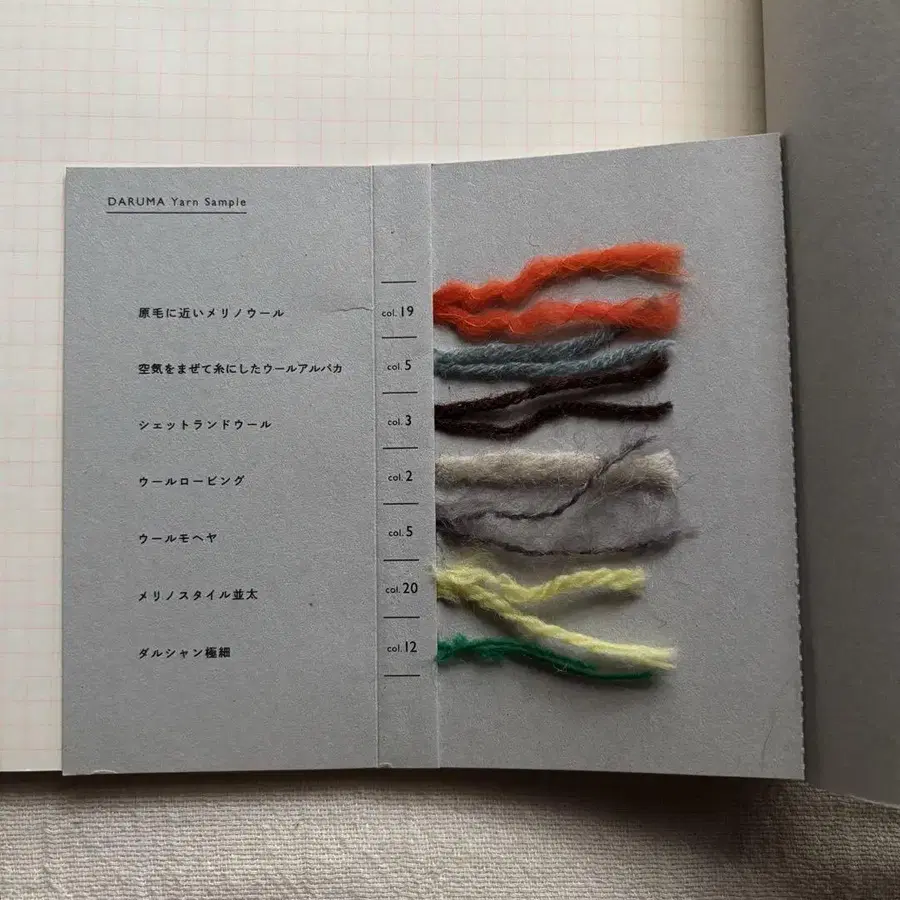 DARUMA Yarn Sample
原毛に近いメリノウール col. 19
空気をまぜて糸にしたウールアルパカ col. 5
シェットランドウール col. 3
ウールロービング col. 2
ウールモヘヤ col. 5
メリノスタイル並太 col. 20
ダルシャン極細 col. 12